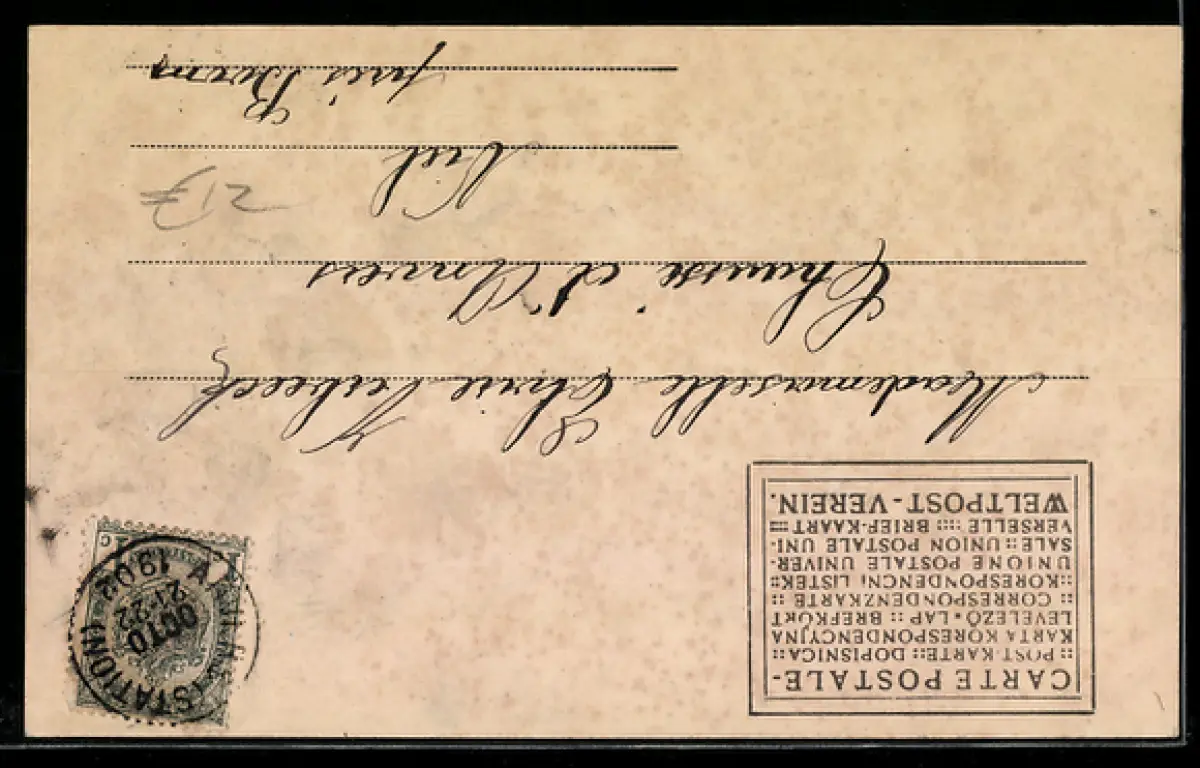 CARTE POSTALE-
:: POST-KARTE:: DOPISNICA::
KARTA KORESPONDENCYJNA
LEVELEZŐ-LAP :: BREFKORT
:: CORRESPONDENZKARTE ::
::KORESPONDENCNi LISTEK::
UNIONE POSTALE UNIVER-
SALE :: UNION POSTALE UNI-
VERSELLE :::: BRIEF-KAART ::::
WELTPOST-VEREIN.
(STATION)
OCTO
21-22
1902
Mademoiselle Verbeeck
Chaussé d'Anvers
Niel
près Boom